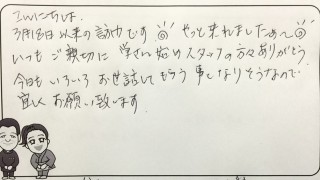 こんにちは。
3月18日以来の訪内です◎ やっと来れましたぁ〜◎
いつも ご親切に 学さん始め スタッフの方々ありがとう。
今日も いろいろ お世話して もらう 事に なりそうなので
宜しく お願い致します。